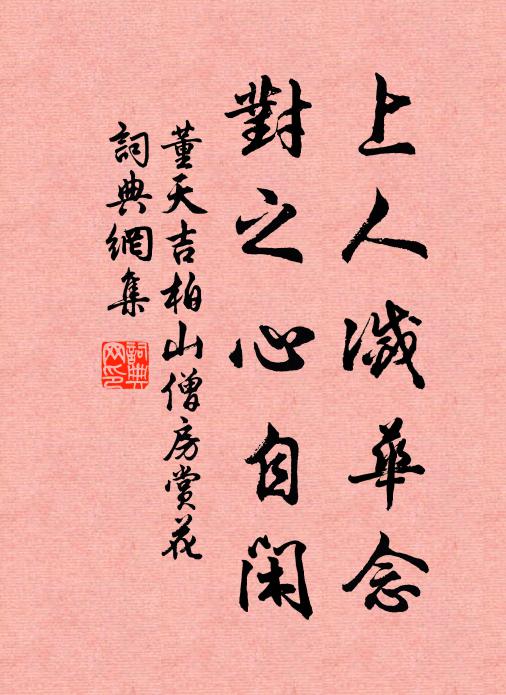 上人滅華念
對之心自閑
董天吉柏山僧房賞花
詞典網集
詞典網印